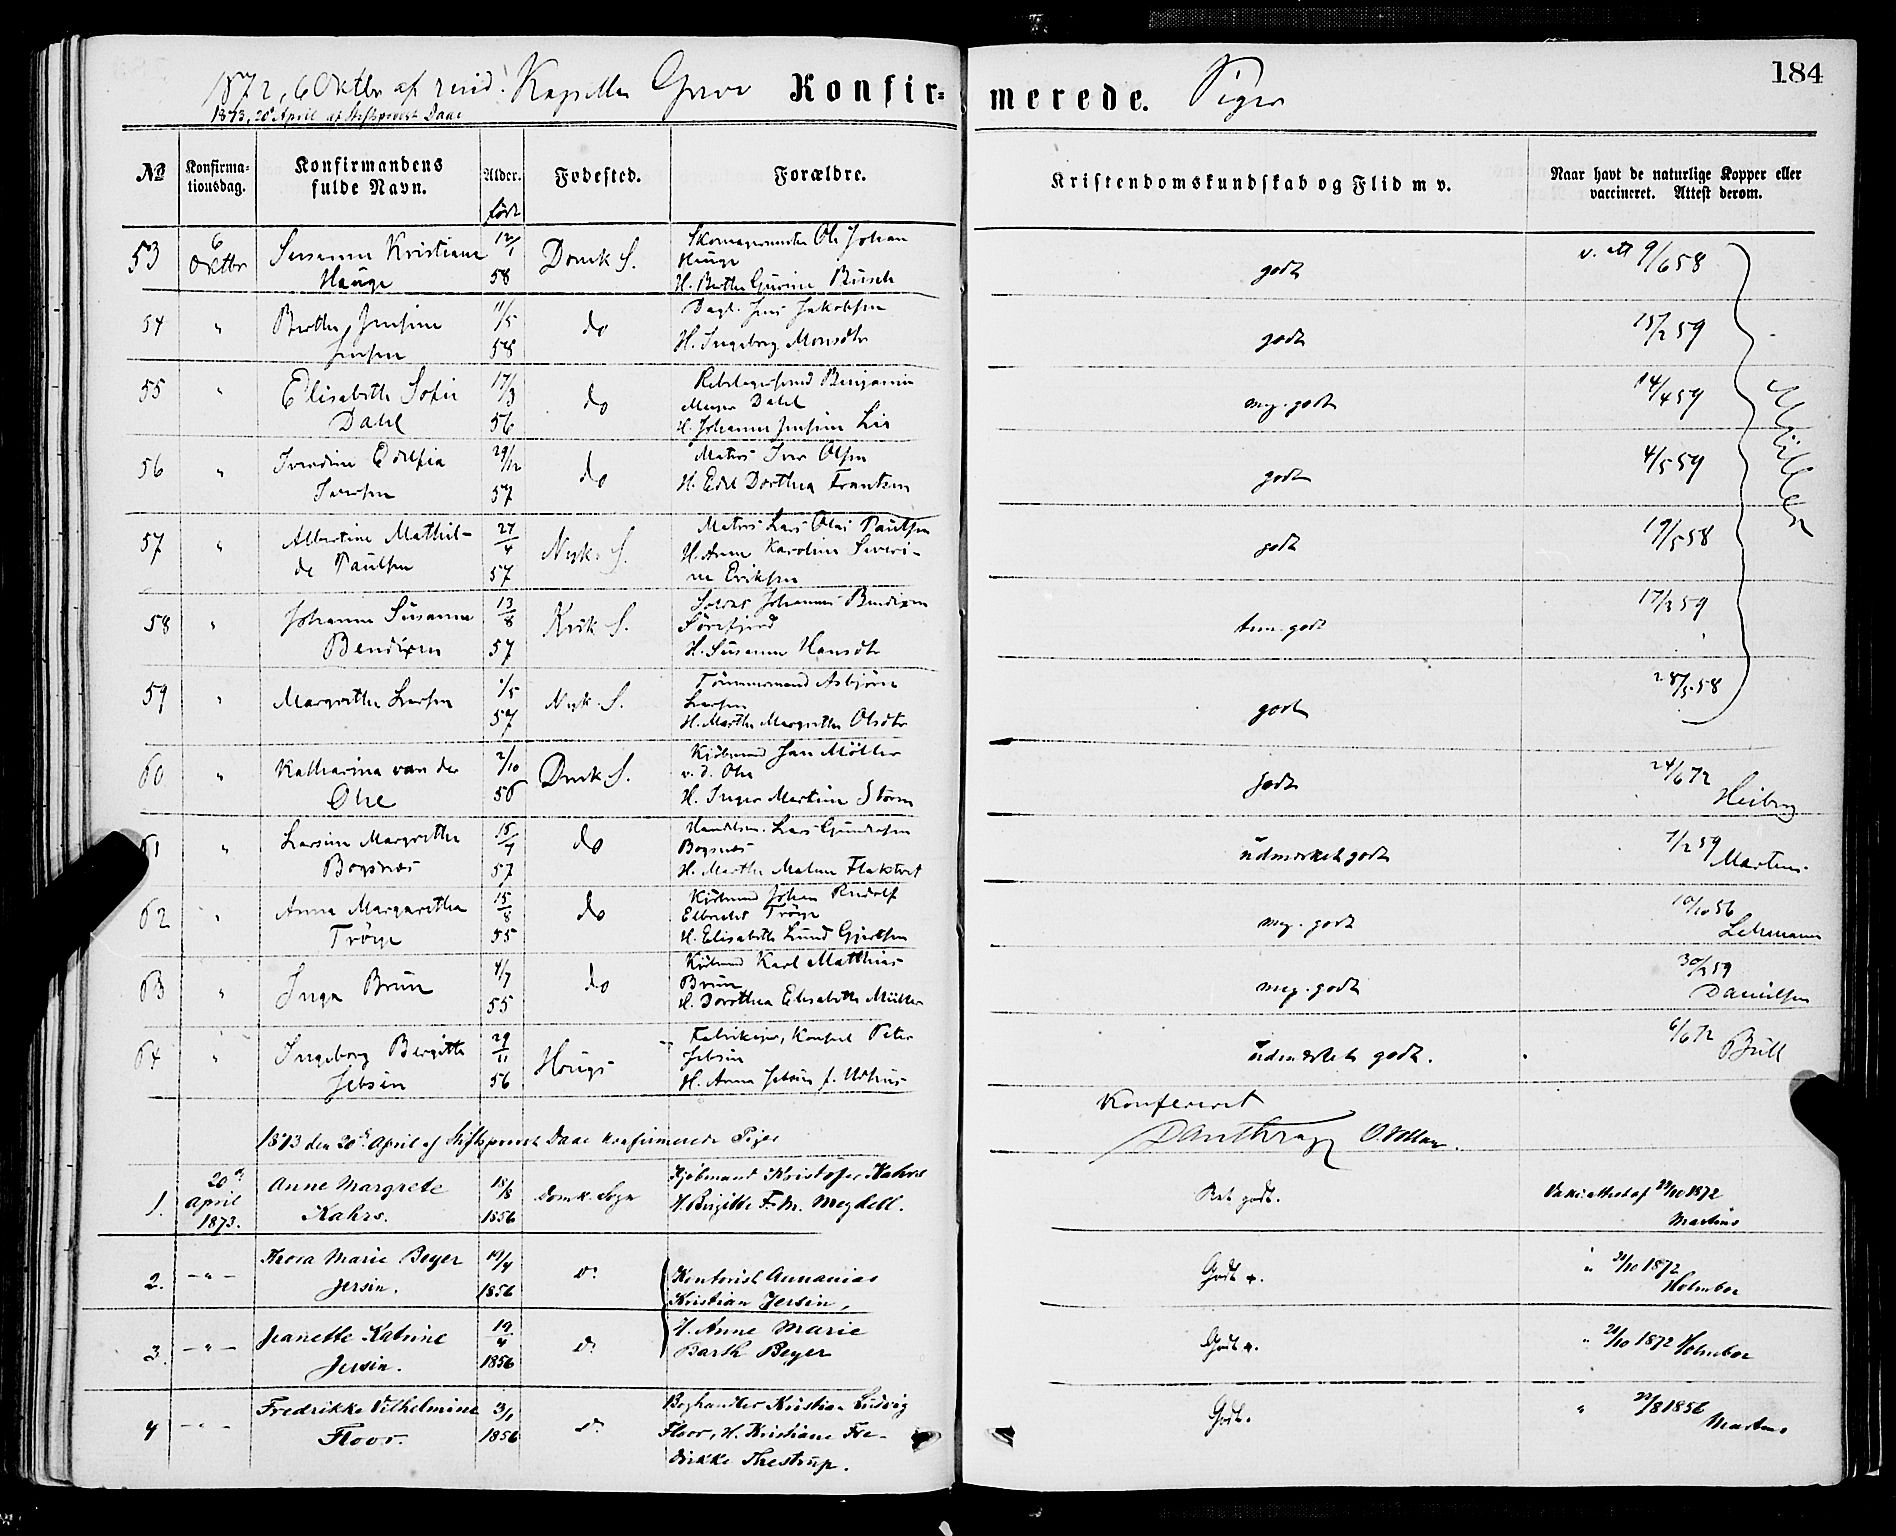 184
1872, 6 Oktbr af resid. Kapellan Grave Konfir=merede. Piger
1873, 20 April af Stiftsprovst Daae
№ Konfirma-tionsdag. Konfirmandens fulde Navn. Alder. født Fødested. Forældre. Kristendomskundskab og Flid m v. Naar havt de naturlige Kopper eller vaccineret. Attest derom.
53 6 Oktbr Susanne Kristiane Hauge 12/1 58 Domk S. Skomagermester Ole Johan Hauge H. Berthe Gurine Busch godt v. att 9/6 58
54 " Berthe Jensine Jensen 11/5 58 do Dagl. Jens Jakobsen H. Ingeborg Monsdtr godt 15/2 59
55 " Elisabeth Sofie Dahl 17/3 56 do Rebslagersvend Benjamin Meyer Dahl H. Johanne Jensine Lie meg. godt 14/4 59
56 " Iverdine Edelfia Iversen 29/12 57 do Matros Iver Olsen H. Edel Dorthea Frantzen godt 4/5 59
57 " Albertine Mathil-de Paulsen 27/4 57 Nyk. S. Matros Lars Olai Paulsen H. Anne Karoline Severi-ne Eriksen godt 19/5 58
58 " Johanne Susanne Bendixen 13/8 57 Krsk S. Soldat Johannes Bendixen Sørefjord H. Susanne Hansdtr tem. godt 17/3 59
59 " Margrethe Larsen 1/5 57 Nyk. S. Tømmermand Asbjørn Larsen H. Marthe Margrethe Olsdtr godt 28/5 58
Müller
60 " Katharina van der Ohe 2/10 56 Domk S. Kjøbmand Jan Møller v. d. Ohe H. Inger Martine Storm godt 24/6 72 Heiberg
61 " Larsine Margrethe Bogsnæs 15/7 57 do Handelsm. Lars Gundersen Bogsnæs H. Marthe Malene Flaktvet udmærket godt 7/2 59 Martens
62 " Anna Margaretha Trøye 15/8 55 do Kjøbmand Johan Rudolf Elbrecht Trøye H. Elisabeth Lund Gjertsen meg. godt 10/10 56 Lehmann
63 " Inga Brun 4/7 55 do Kjøbmand Karl Matthias Brun H. Dorothea Elisabeth Müller meg. godt 30/3 59 Danielsen
64 " Ingeborg Bergitte Jebsen 29/11 56 Hougs Fabrikejer, Konsul Peter Jebsen H. Anna Jebsen udmærket godt. 6/6 72 Bull
Konfereret
1873 den 20de April af Stiftsprovst Daae konfirmerede Piger
1. 20de April 1873. Anne Margrete Kahrs. 15/8 1856 Domk. Sogn Kjøbmand Kristofer Kahrs H. Birgitte F. M. Meydell. Ret godt. Vakc. attest af 22/10 1872 Martens
2. -"- Thora Marie Beyer Jersin. 19/4 1856 do Kontorist Annanias Kristian Jersin, Godt +. " 21/10 1872 Holmboe
3. -"- Jeanette Katrine Jersin. 19/4 1856 do H. Anne Marie Barth Beyer Godt +. " 21/10 1872 Holmboe
4 -"- Fredrikke Vilhelmine Floor. 3/1 1856 do Boghandler Kristian Ludvig Floor, H. Kristiane Fre-drikke Thestrup. Godt. " 22/8 1856 Martens